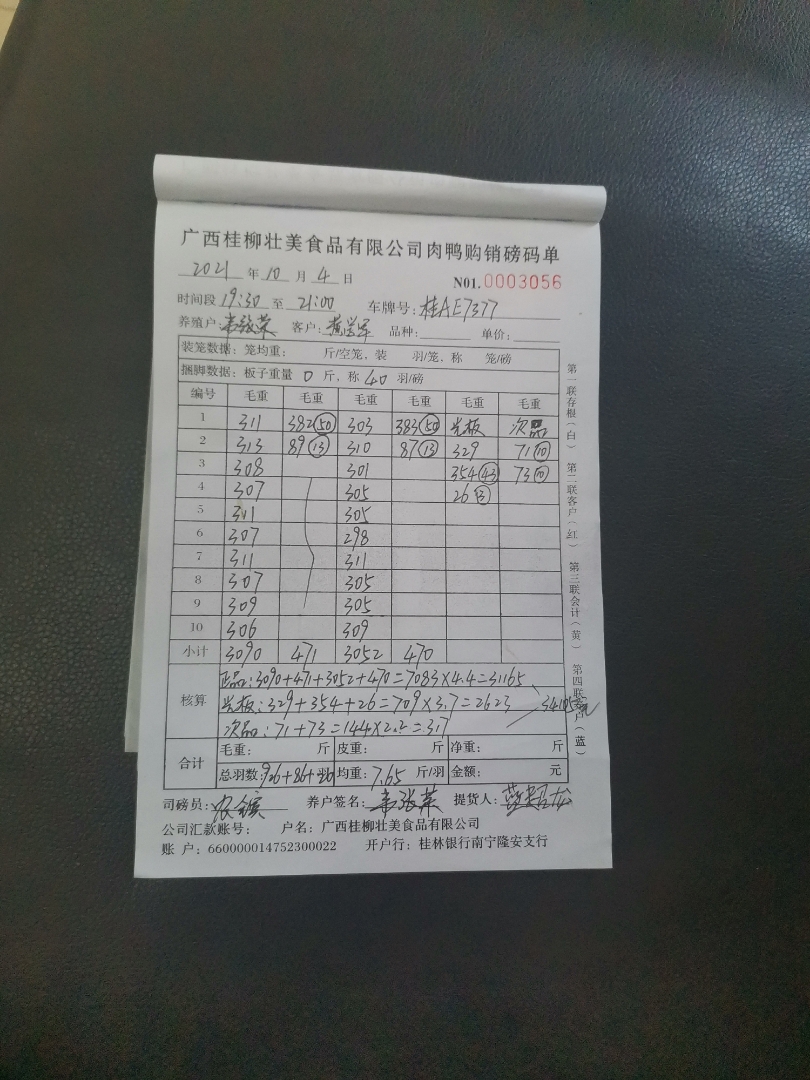 广西桂柳壮美食品有限公司肉鸭购销磅码单
2021 年 10 月 4 日 N01.0003056
时间段 19:30 至 21:00 车牌号: 桂AE7377
养殖户: 客户: 品种: 单价:
装笼数据: 笼均重: 斤/空笼, 装 羽/笼, 称 笼/磅
捆脚数据: 板子重量 0 斤, 称 40 羽/磅
编号 毛重 毛重 毛重 毛重 毛重 毛重
1 311 382(50) 303 383(50) 光板 次品
2 313 89(13) 310 87(13) 329 71(10)
3 308 301 354(43) 73(10)
4 307 305 26
5 311 305
6 307 298
7 311 311
8 307 305
9 309 305
10 306 309
小计 3090 471 3052 470
核算
正品:3090+471+3052+470=7083×4.4=31165
光板:329+354+26=709×3.7=2623
次品:71+73=144×2.2=317
合计
毛重: 斤 皮重: 斤 净重: 斤
总羽数: 926+86+20 羽 均重: 7.65 斤/羽 金额: 元
司磅员: 养户签名: 提货人:
公司汇款账号: 户名: 广西桂柳壮美食品有限公司
账 户: 660000014752300022 开户行: 桂林银行南宁隆安支行
第一联存根(白) 第二联客户(红) 第三联会计(黄) 第四联客户(蓝)